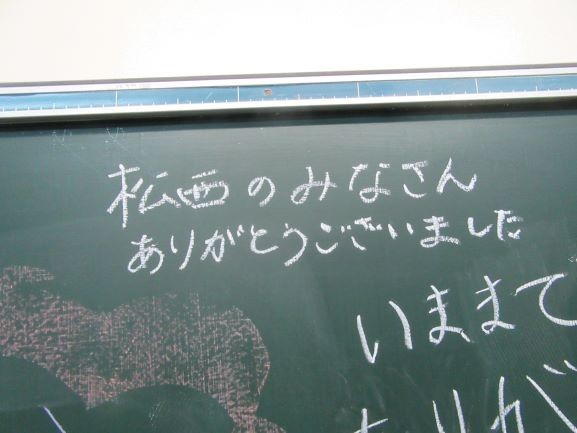 松西のみなさん
ありがとうございました
いままで
ありが